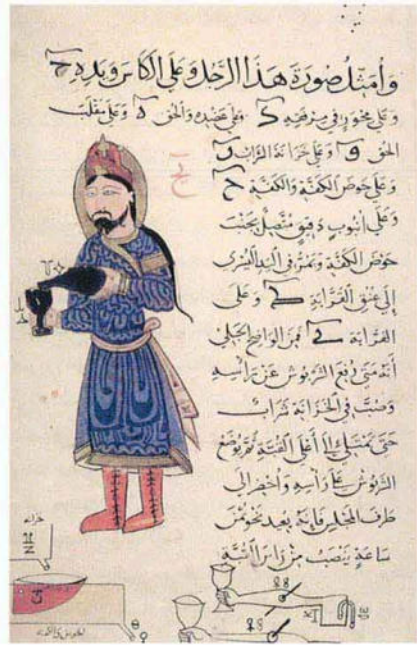 وأمثل صورة هذا الرجل وعلى الكاس ويده ح
وعلى محور في مرفقه ك وعلى عضده والحق ه وعلى مقلب
الحق و وعلى خزانة الشراب ر
وعلى حوض الكفة والكفة ح
وعلى أنبوب دقيق متصل بجنب
حوض الكفة وتمر في اليد اليسرى
إلى عنق القرابة ط وعلى
القرابة ي فمن الواضح الجلي
أنه متى رفع الشربوش عن راسه
وصب في الخزانة شراب
حتى تمتلي إلى أعلى القبة ثم يوضع
الشربوش على رأسه وأحضر إلى
طرف المجلس فإنه بعد نحو ثمن
ساعة ينصب من